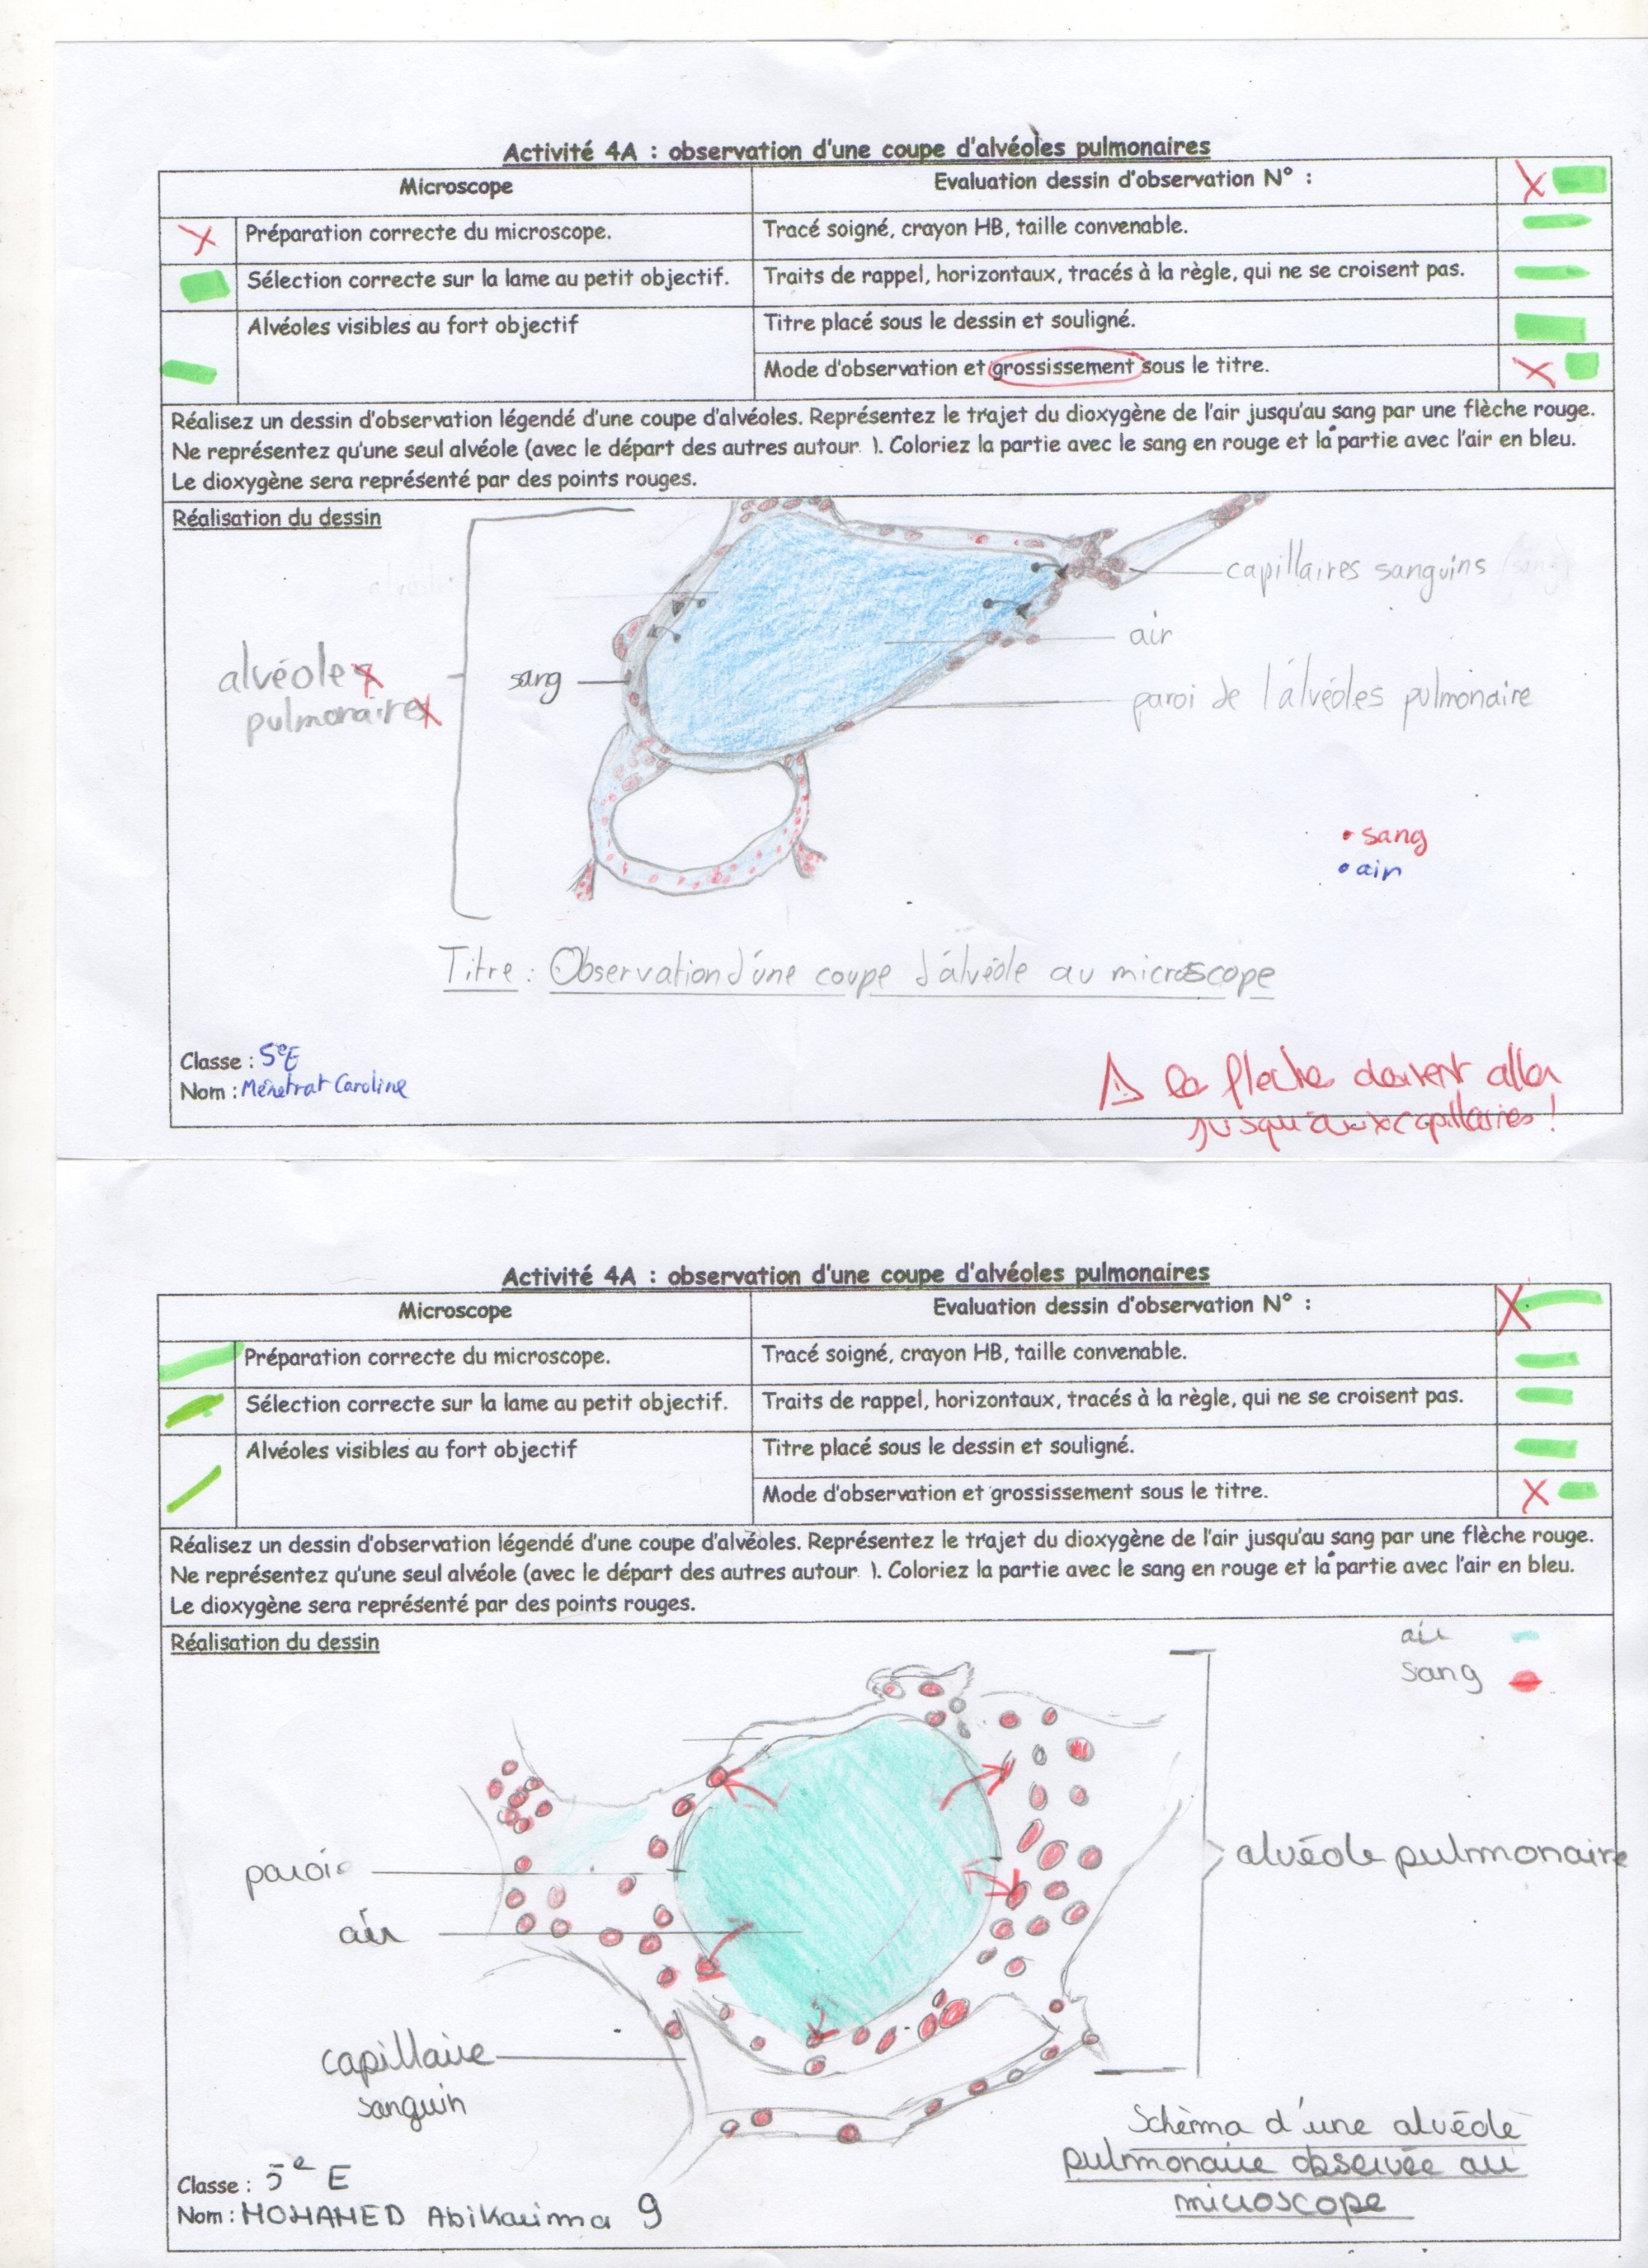 Activité 4A : observation d'une coupe d'alvéoles pulmonaires
Microscope
Evaluation dessin d'observation N° :
X
X
Préparation correcte du microscope.
Tracé soigné, crayon HB, taille convenable.
Sélection correcte sur la lame au petit objectif.
Traits de rappel, horizontaux, tracés à la règle, qui ne se croisent pas.
Alvéoles visibles au fort objectif
Titre placé sous le dessin et souligné.
Mode d'observation et grossissement sous le titre.
X
Réalisez un dessin d'observation légendé d'une coupe d'alvéoles. Représentez le trajet du dioxygène de l'air jusqu'au sang par une flèche rouge.
Ne représentez qu'une seul alvéole (avec le départ des autres autour ). Coloriez la partie avec le sang en rouge et la partie avec l'air en bleu.
Le dioxygène sera représenté par des points rouges.
Réalisation du dessin
capillaires sanguins
air
alvéoles
pulmonaires
sang
paroi de l'alvéoles pulmonaire
sang
air
Titre : Observation d'une coupe d'alvéole au microscope
Classe : 5eE
Nom : Ménetrat Caroline
⚠ les flèches doivent aller
jusqu'aux capillaires !
Activité 4A : observation d'une coupe d'alvéoles pulmonaires
Microscope
Evaluation dessin d'observation N° :
X
Préparation correcte du microscope.
Tracé soigné, crayon HB, taille convenable.
Sélection correcte sur la lame au petit objectif.
Traits de rappel, horizontaux, tracés à la règle, qui ne se croisent pas.
Alvéoles visibles au fort objectif
Titre placé sous le dessin et souligné.
Mode d'observation et grossissement sous le titre.
X
Réalisez un dessin d'observation légendé d'une coupe d'alvéoles. Représentez le trajet du dioxygène de l'air jusqu'au sang par une flèche rouge.
Ne représentez qu'une seul alvéole (avec le départ des autres autour ). Coloriez la partie avec le sang en rouge et la partie avec l'air en bleu.
Le dioxygène sera représenté par des points rouges.
Réalisation du dessin
air
sang
paroi
alvéole pulmonaire
air
capillaire
sanguin
Schéma d'une alvéole
pulmonaire observée au
microscope
Classe : 5e E
Nom : MOHAMED Abikarima 9